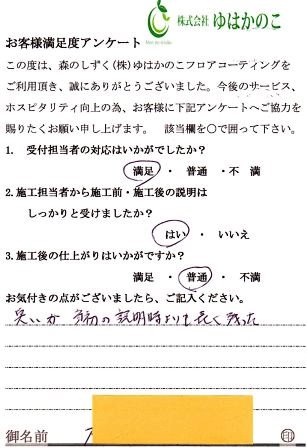 株式会社 ゆはかのこ
お客様満足度アンケート
この度は、森のしずく(株)ゆはかのこフロアコーティングを
ご利用頂き、誠にありがとうございました。今後のサービス、
ホスピタリティ向上の為、お客様に下記アンケートへご協力を
賜りたくお願い申し上げます。 該当欄を○で囲って下さい。
1. 受付担当者の対応はいかがでしたか?
満足 ・ 普通 ・ 不 満
2.施工担当者から施工前・施工後の説明は
しっかりと受けましたか?
はい ・ いいえ
3.施工後の仕上がりはいかがですか?
満足 ・ 普通 ・ 不満
お気付きの点がございましたら、ご記入ください。
臭いが 当初の説明時よりも長く残った
御名前 ㊞